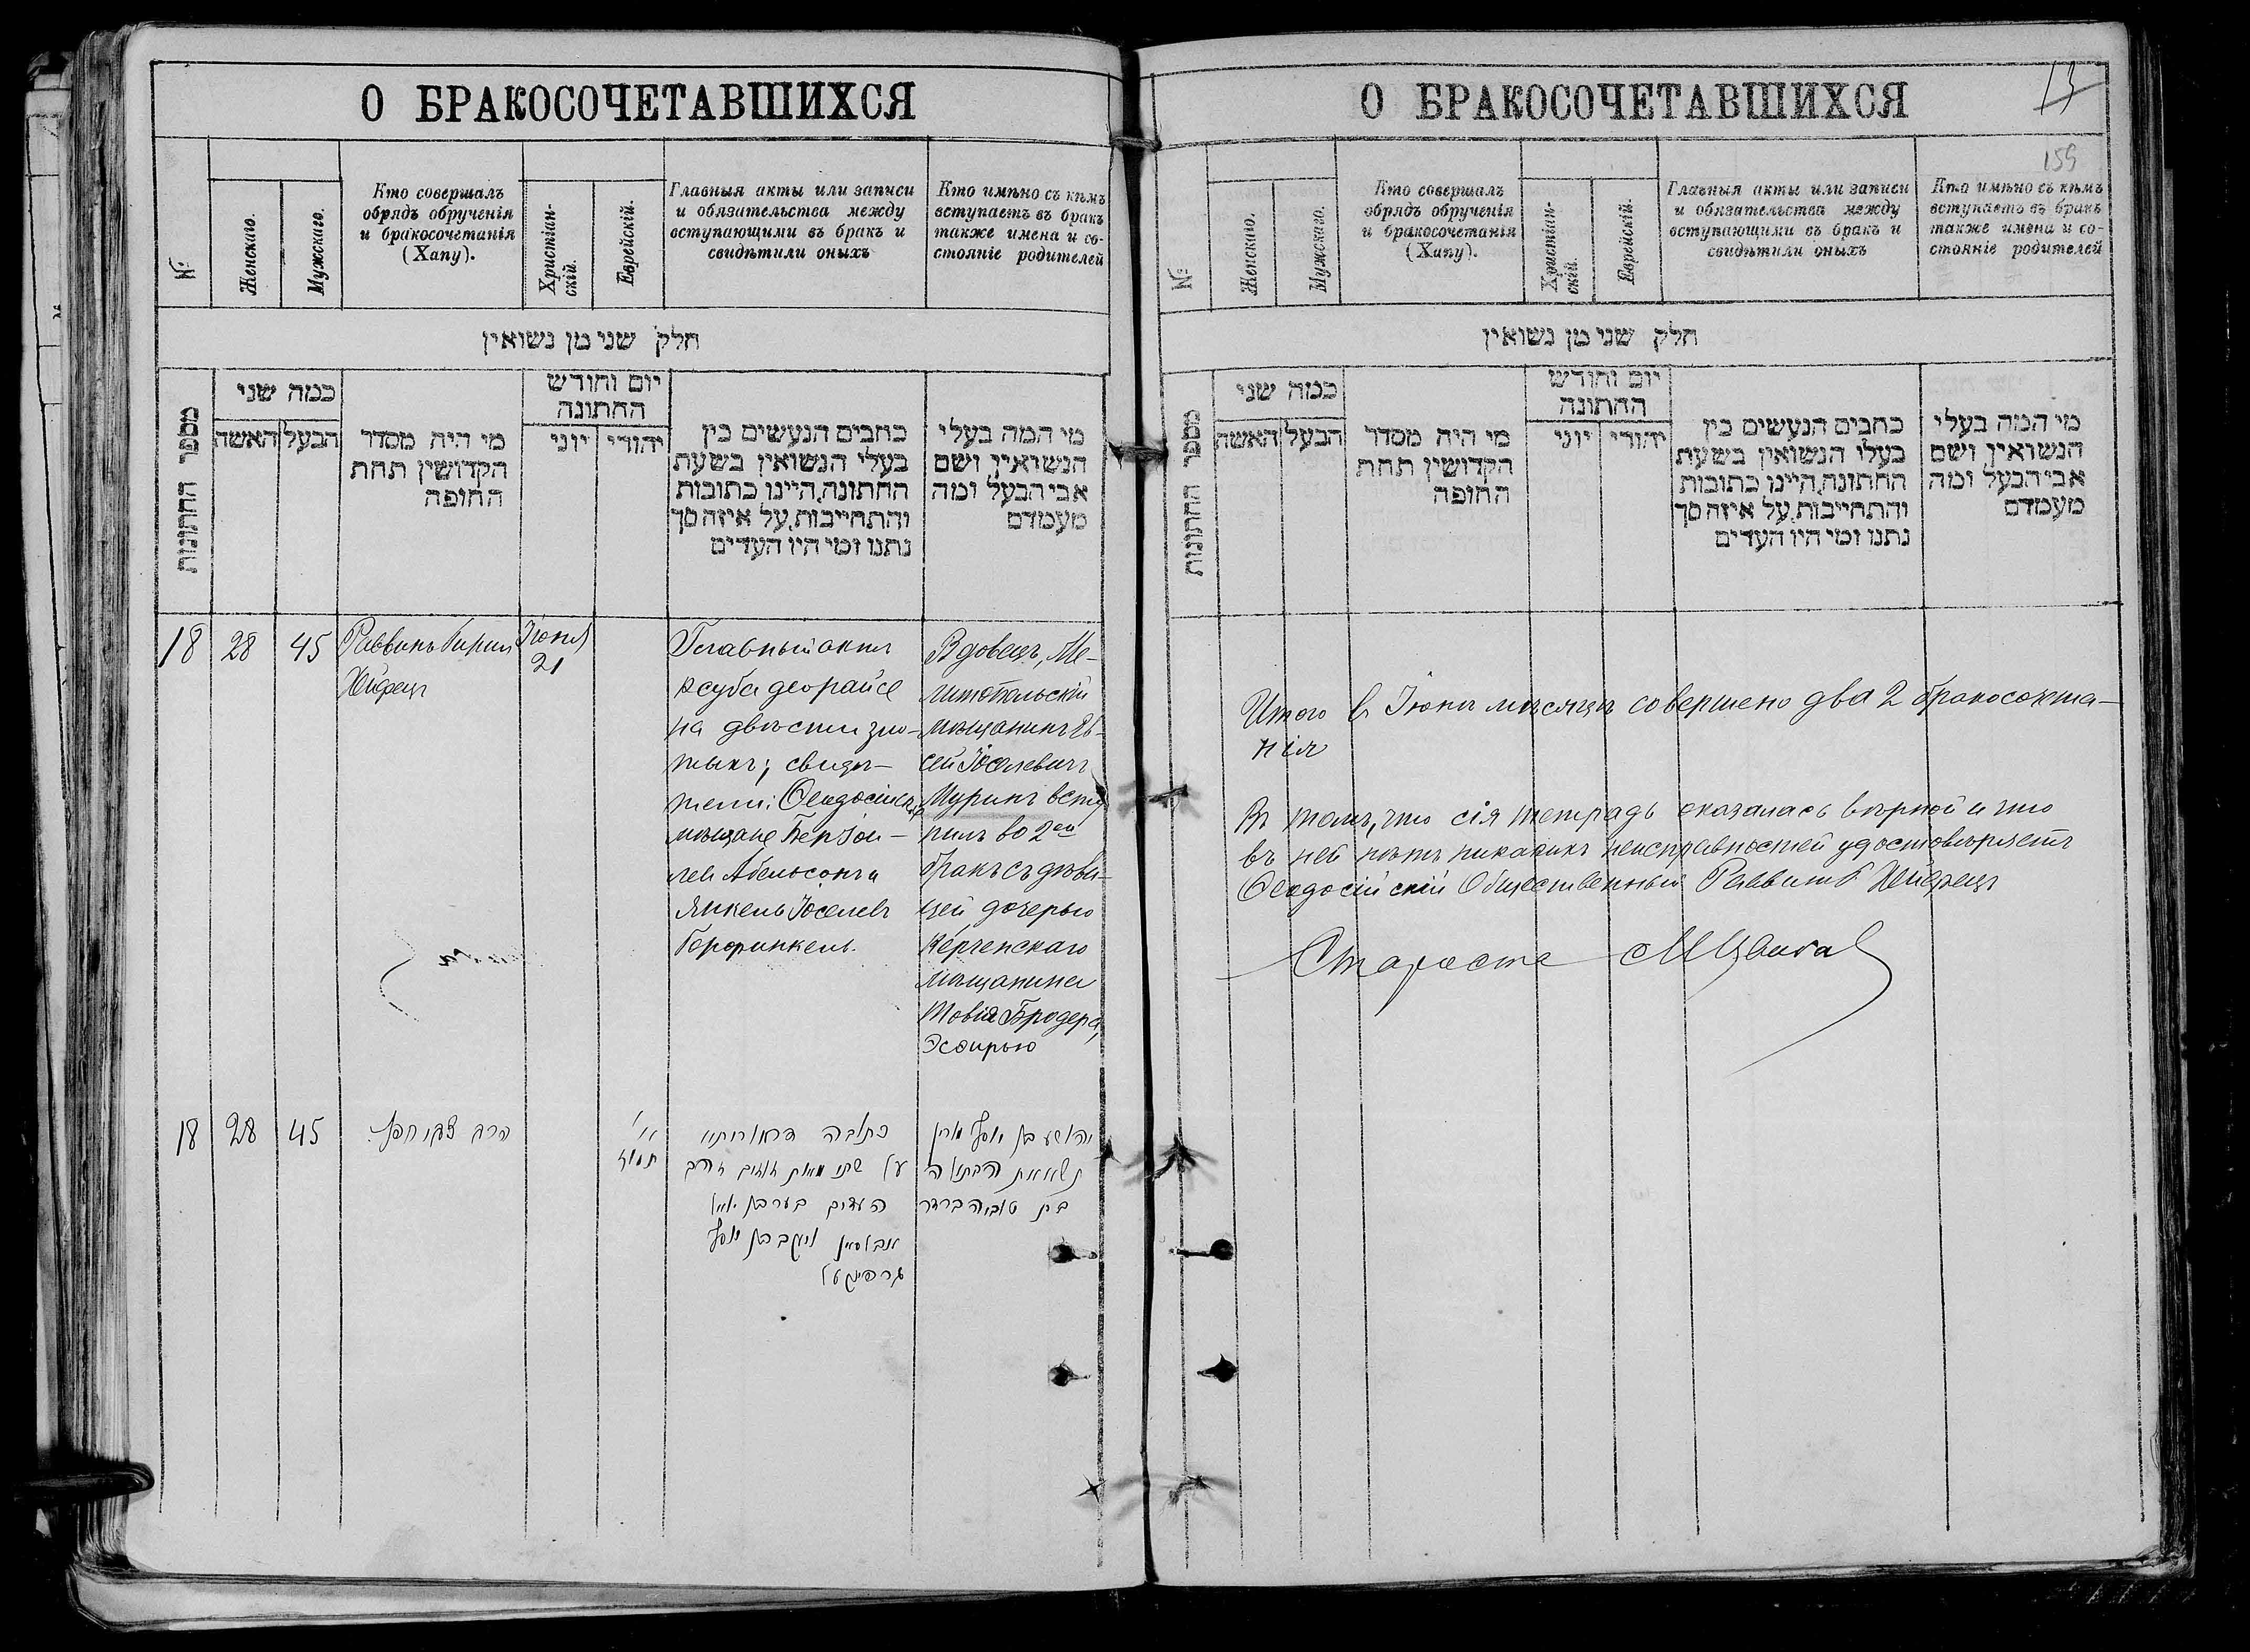 О БРАКОСОЧЕТАВШИХСЯ
№
Женскаго.
Мужскаго.
Кто совершалъ
обрядъ обрученія
и бракосочетанія
(Хапу).
Христіан-
скій.
Еврейскій.
Главныя акты или записи
и обязательства между
вступающими въ бракъ и
свидѣтили оныхъ
Кто имѣно съ кѣмъ
вступаетъ въ бракъ
также имена и со-
стояніе родителей
חלק שני מן נשואין
מספר החתונות
כמה שני
האשה
הבעל
מי היה מסדר
הקדושין תחת
החופה
יום וחודש
החתונה
יוני
יהודי
כתבים הנעשים בין
בעלי הנשואין בשעת
החתונה, היינו כתובות
והתחייבות, על איזה סך
נתנו ומי היו העדים
מי המה בעלי
הנשואין ושם
אבי הבעל ומה
מעמדם
18
28
45
Раввинъ
Хейфецъ
Іюня
21
Главный актъ
ксуба деорайсе
на двѣсти зло-
тыхъ; свидѣ-
тели: Ѳеодосійскіе
мѣщане Бер Іои-
лев Абельсонъ и
Янкель Іоселевъ
Горфинкель.
Вдовецъ, Ме-
литопольскій
мѣщанинъ Ев-
сей Іоселевичъ
Муринъ всту-
пилъ во 2ой
бракъ съ дѣви-
цей дочерью
Керченскаго
мѣщанина
Товія Бродера,
Эсѳирью
18
28
45
הרב
יו
תמוז
כתובה דאורייתא
על שתי מאות זוזים זהב
העדים בער בן יואל
אבלסאן ויעקב בן יוסף
גרפינקעל
יהושע בן יוסף מורין
נשא את הבתולה
בת טוביה ברדר
О БРАКОСОЧЕТАВШИХСЯ
13
159
№
Женскаго.
Мужскаго.
Кто совершалъ
обрядъ обрученія
и бракосочетанія
(Хапу).
Христіан-
скій.
Еврейскій.
Главныя акты или записи
и обязательства между
вступающими въ бракъ и
свидѣтили оныхъ
Кто имѣно съ кѣмъ
вступаетъ въ бракъ
также имена и со-
стояніе родителей
חלק שני מן נשואין
מספר החתונות
כמה שני
האשה
הבעל
מי היה מסדר
הקדושין תחת
החופה
יום וחודש
החתונה
יוני
יהודי
כתבים הנעשים בין
בעלי הנשואין בשעת
החתונה, היינו כתובות
והתחייבות, על איזה סך
נתנו ומי היו העדים
מי המה בעלי
הנשואין ושם
אבי הבעל ומה
מעמדם
Итого в Іюнѣ мѣсяцѣ совершено два 2 бракосочета-
нія
Въ томъ, что сія тетрадь оказалась вѣрной и что
въ ней нѣтъ никакихъ неисправностей удостовѣряетъ
Ѳеодосійскій Общественный Раввинъ Хейфецъ
Староста